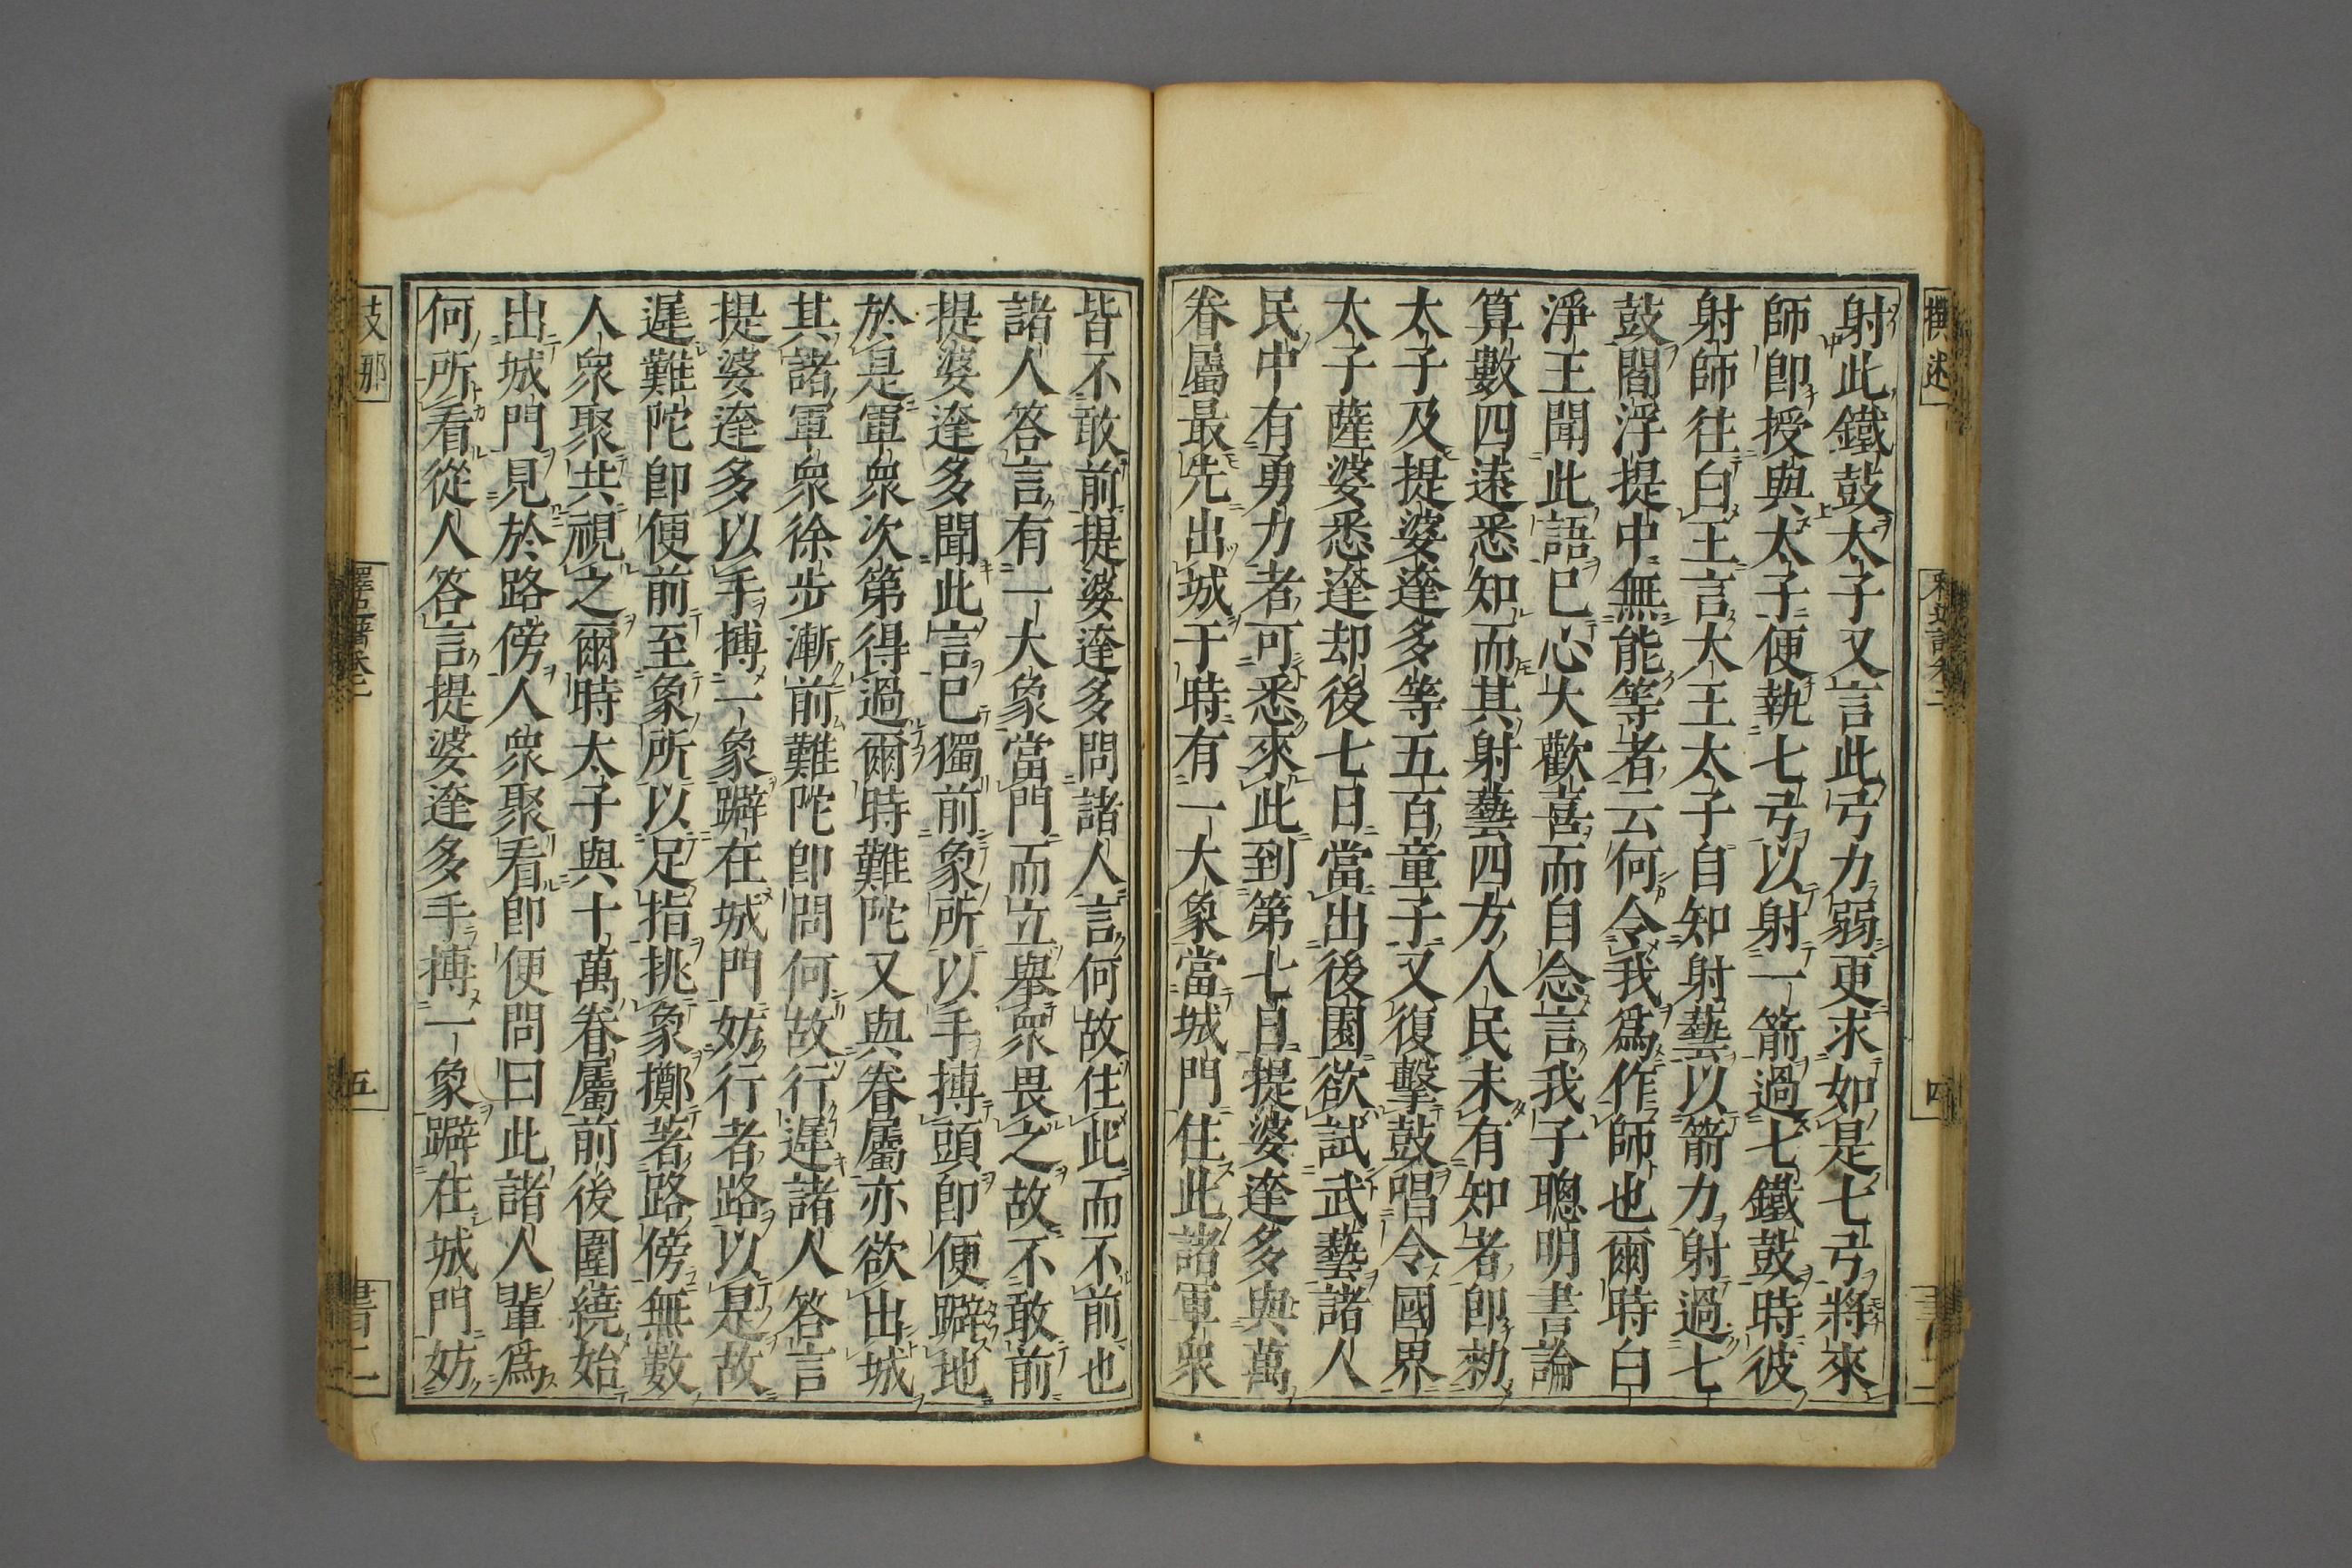 射此鐵鼓太子又言此弓力弱更求如是七弓將來
師卽授與太子便執七弓以射一箭過七鐵鼓時彼
射師往白王言大王太子自知射藝以箭力射過七
鼓閻浮提中無能等者云何令我爲作師也爾時白
淨王聞此語已心大歡喜而自念言我子聰明書論
算數四遠悉知而其射藝四方人民未有知者卽勑
太子及提婆達多等五百童子又復擊鼓唱令國界
太子薩婆悉達却後七日當出後園欲試武藝諸人
民中有勇力者可悉來此到第七日提婆達多與萬
眷屬最先出城于時有一大象當城門住此諸軍衆
皆不敢前提婆達多問諸人言何故住此而不前也
諸人答言有一大象當門而立舉衆畏之故不敢前
提婆達多聞此言已獨前象所以手搏頭卽便躃地
於是軍衆次第得過爾時難陀又與眷屬亦欲出城
其諸軍衆徐步漸前難陀卽問何故行遲諸人答言
提婆達多以手搏一象躃在城門妨行者路以是故
遲難陀卽便前至象所以足指挑象擲著路傍無數
人衆聚共視之爾時太子與十萬眷屬前後圍繞始
出城門見於路傍人衆聚看卽便問曰此諸人輩爲
何所看從人答言提婆達多手搏一象躃在城門妨
五
四